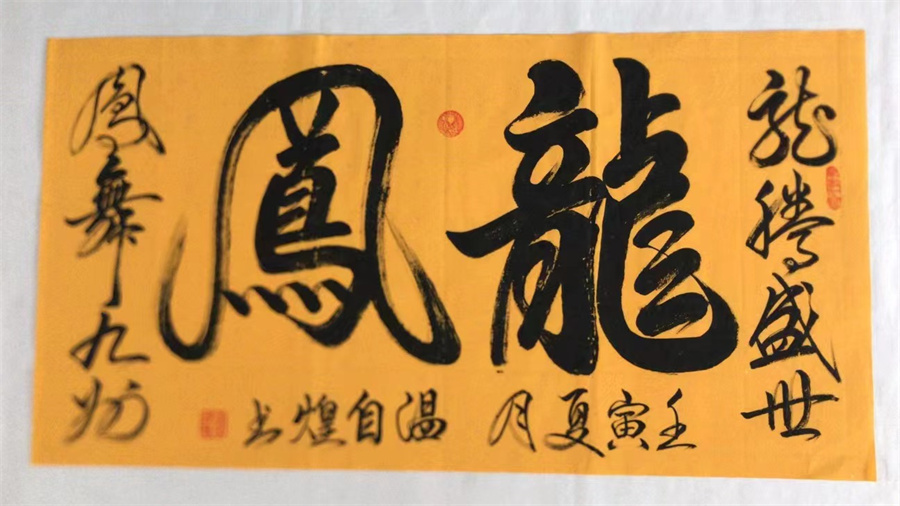 龍腾盛世
龍鳳
鳳舞九州
壬寅夏月
温自煌书